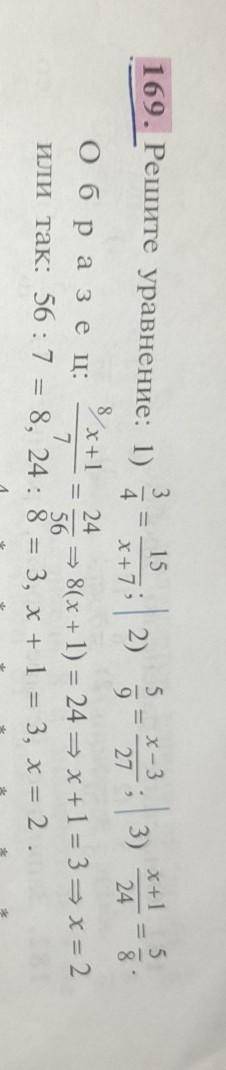 169. Решите уравнение: 1) 3/4 = 15/(x+7); 2) 5/9 = (x−3)/27; 3) (x+1)/24 = 5/8.
О б р а з е ц: ⁸⁄(x+1)/7 = 24/56 ⇒ 8(x+1) = 24 ⇒ x+1 = 3 ⇒ x = 2
или так: 56 : 7 = 8, 24 : 8 = 3, x + 1 = 3, x = 2 .
* * * * * *